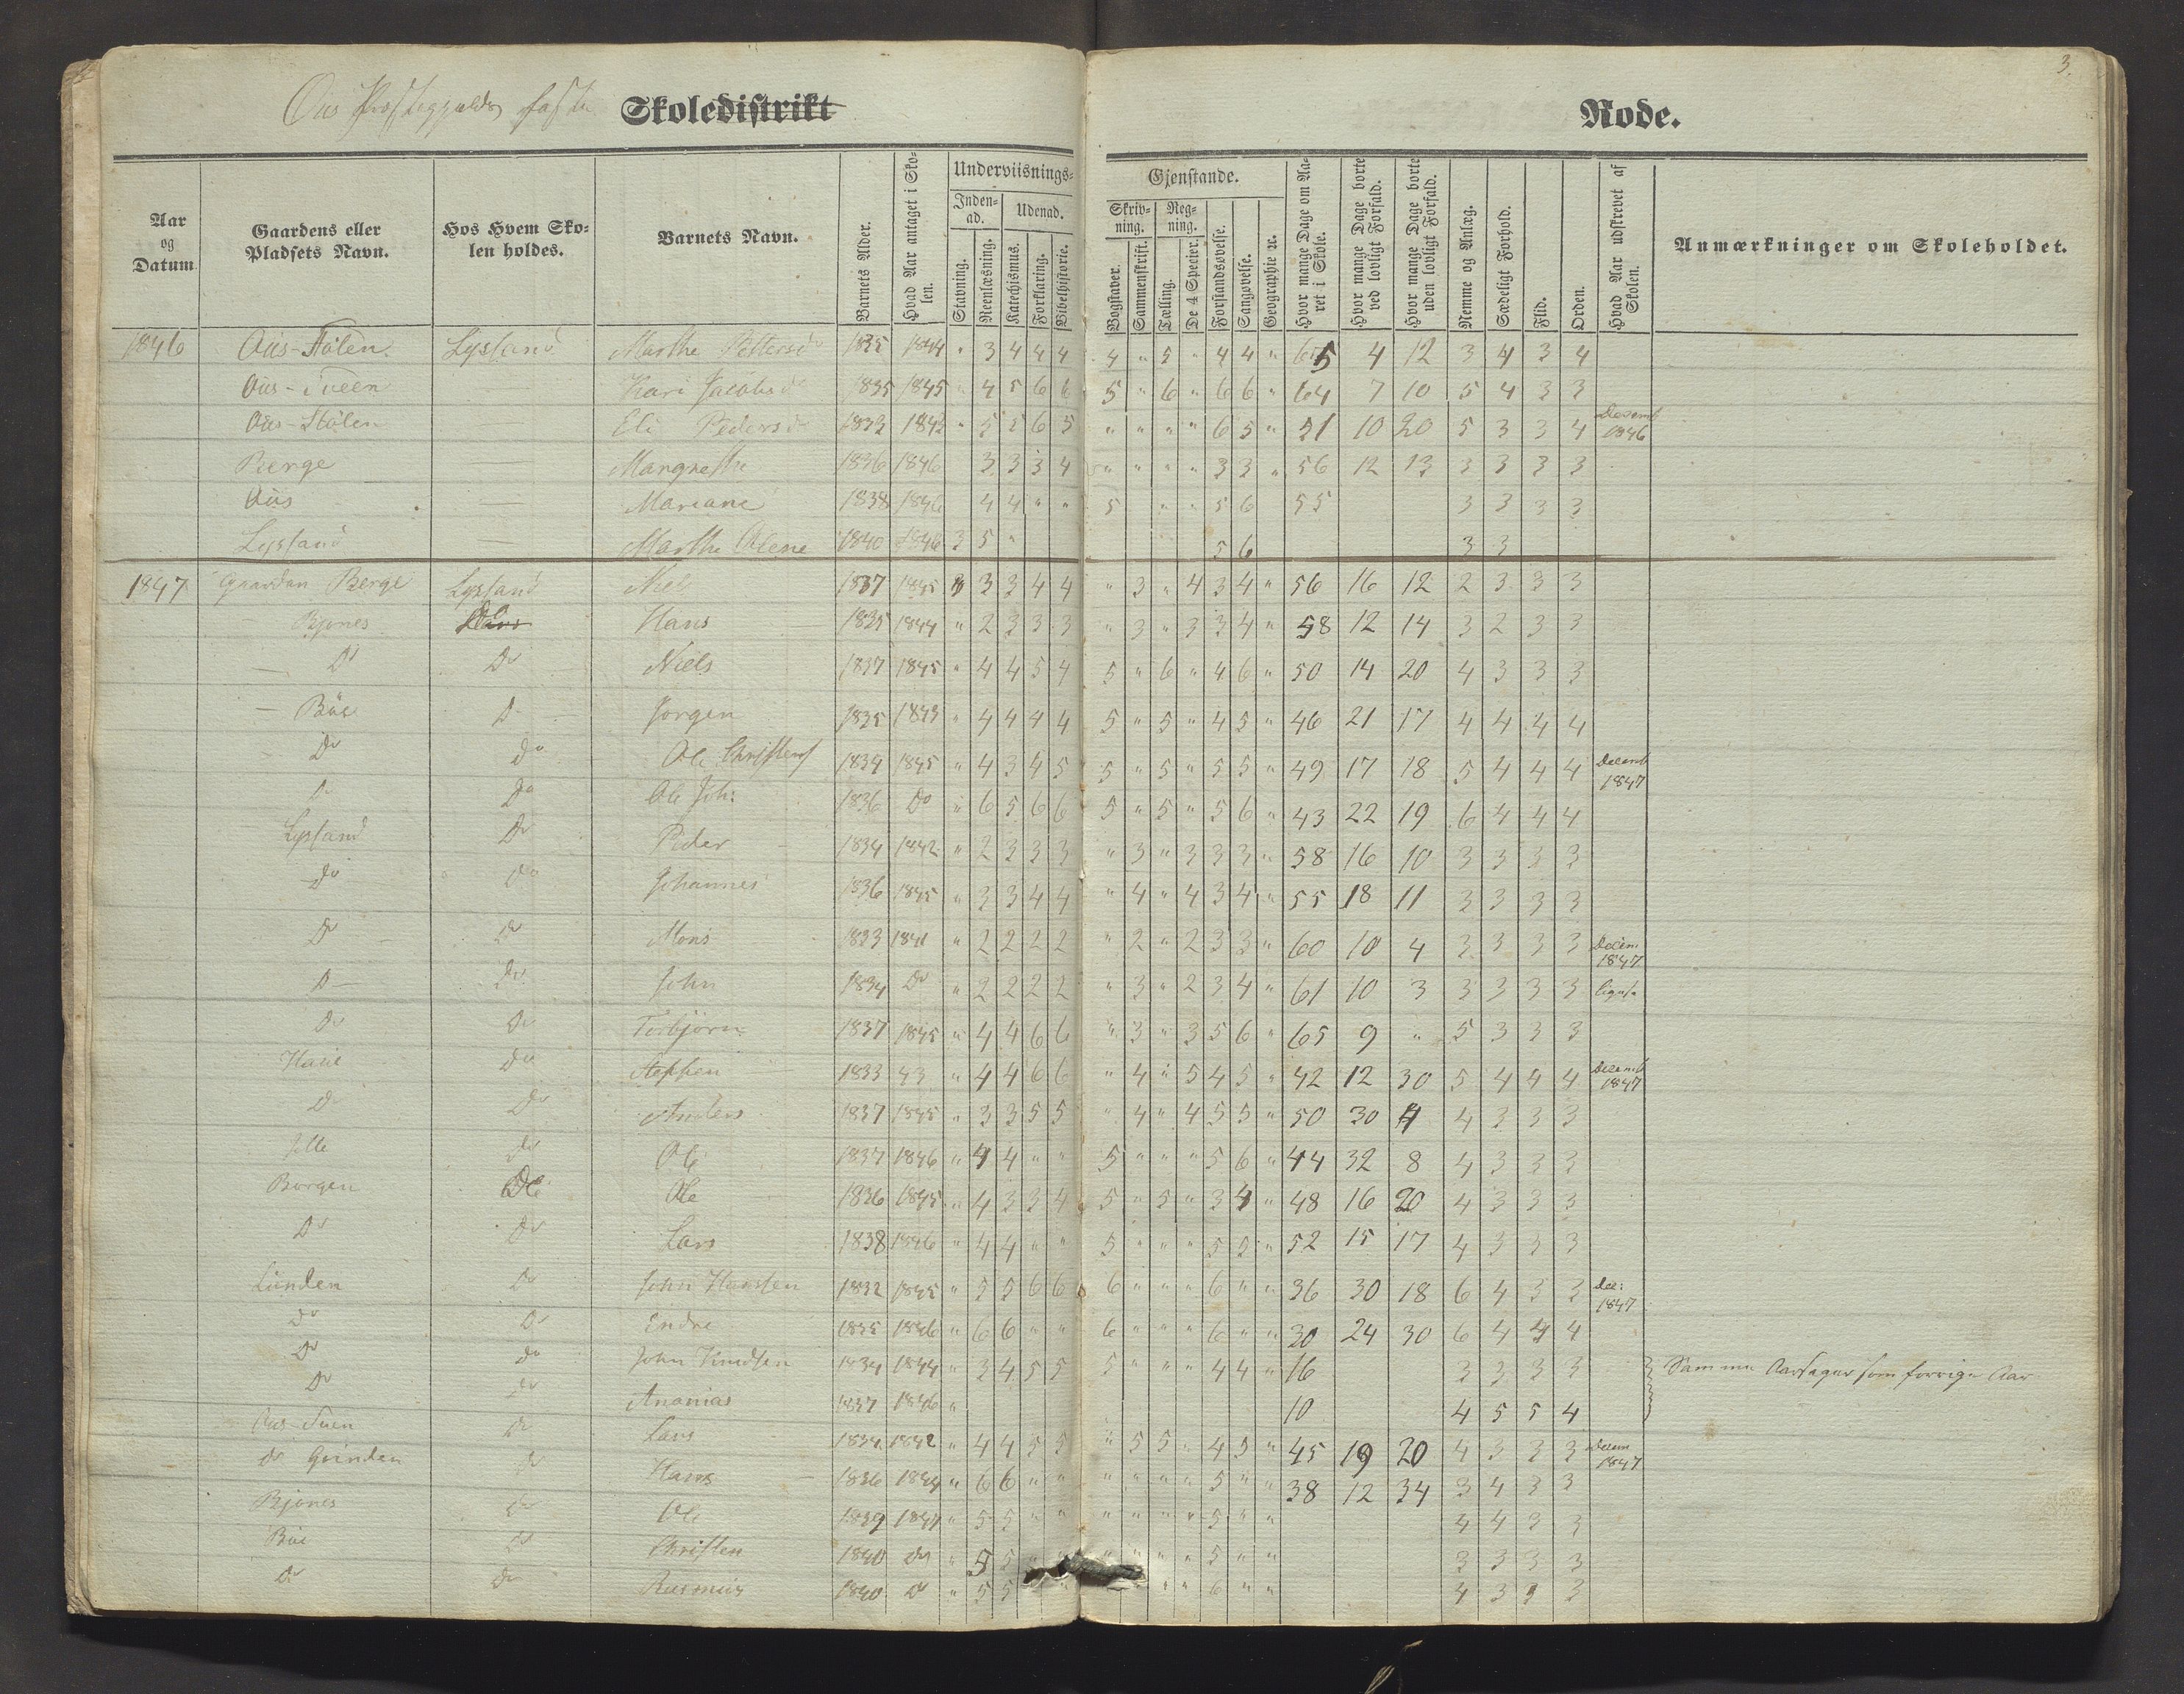 3.
Oüs Præstegjelds faste Skoledistrikt Rode.
Aar og Datum
Gaardens eller Pladsets Navn.
Hos Hvem Skolen holdes.
Barnets Navn.
Barnets Alder.
Hvad Aar antaget i Skolen.
Underviisnings- Gjenstande.
Inden-ad. Udenad. Skrivning. Regning.
Stavning. Reenlæsning. Katechismus. Forklaring. Bibelhistorie.
Bogstaver. Sammenskrift. Tælling. De 4 Specier. Forstandsøvelse. Sangøvelse. Geographie ꝛc.
Hvor mange Dage om Aaret i Skole.
Hvor mange Dage borte ved lovligt Forfald.
Hvor mange Dage borte uden lovligt Forfald.
Nemme og Anlæg. Sædeligt Forhold. Flid. Orden.
Hvad Aar udskrevet af Skolen.
Anmærkninger om Skoleholdet.
1846 Oüs-Stölen Lysland Marthe Pettersd 1835 1844 " 3 4 4 4 4 " 5 " 4 4 " 65 4 12 3 4 3 4
Oüs-Tveen — Kari Jacobsd 1835 1845 " 4 5 6 6 5 " 6 " 6 6 " 64 7 10 5 4 3 3
Oüs-Stölen — Eli Pedersd 1832 1842 " 5 5 6 5 " " " " 6 5 " 51 10 20 5 3 3 4 Decemb 1846
Berge — Margrethe 1836 1846 3 3 3 4 " " " " 3 3 " 56 12 13 3 3 3 3
Oüs — Mariane 1838 1846 4 4 " " 5 " " 5 6 55 3 3 3 3
Lysland — Marthe Olene 1840 1846 3 5 " 5 6 3 3
1847 Gaarden Berge Lysland Niels 1837 1845 3 3 4 4 " 3 " 4 3 4 " 56 16 12 2 3 3 3
Bjönes Do Hans 1835 1844 " 2 3 3 3 " 3 " 3 3 4 " 58 12 14 3 2 3 3
— Do Do Niels 1837 1845 " 4 4 5 4 5 " 6 " 4 6 " 50 14 20 4 3 3 3
— Büe D Jorgen 1835 1843 " 4 4 4 4 5 " 5 " 4 5 " 46 21 17 4 4 4 4
Do Do Ole Christens 1834 1845 " 4 3 4 5 5 " 5 " 5 5 " 49 17 18 5 4 4 4 Decemb 1847
Do Do Ole Joh: 1836 Do " 6 5 6 6 5 " 5 " 5 6 " 43 22 19 6 4 4 4
Lysland Do Peder 1834 1842 " 2 3 3 3 " 3 " 3 3 3 " 58 16 10 3 3 3 3
Do Do Johannes 1836 1845 " 3 3 4 4 " 4 " 4 3 4 " 55 18 11 3 3 3 3
Do Do Mons 1833 1841 " 2 2 2 2 " 2 " 2 3 3 " 60 10 4 3 3 3 3 Decem 1847
D— Do John 1834 Do " 2 2 2 2 " 3 " 2 3 4 " 61 10 3 3 3 3 3
Do Do Torbjörn 1837 1845 " 4 4 6 6 " 3 " 3 5 6 " 65 9 " 5 3 3 3
Haüe Do Steffen 1833 43 " 4 4 6 6 " 4 " 5 4 5 " 42 12 30 5 4 4 4 Decemb 1847
Do Do Anders 1837 1845 " 3 3 5 5 " 4 " 4 5 5 " 50 30 4 4 3 3 3
Do Ole 1837 1846 " 4 4 " " 5 " " " 5 6 " 44 32 8 4 3 3 3
Borgen Do Ole 1836 1845 " 4 3 3 4 5 " 5 " 3 4 " 48 16 20 4 3 3 3
Do Do Lars 1838 1846 " 4 4 " " 5 " " " 5 5 " 52 15 17 4 3 3 3
Lünden Do John Hanssen 1832 1845 " 5 5 6 6 6 " " " 6 " " 36 30 18 6 4 3 3 Dec: 1847
Do Do Endre 1835 1846 " 6 6 " " 6 " " " 6 " " 30 24 30 6 4 4 4
Do Do John Knudsen 1834 1844 " 3 4 5 5 5 " " " 4 4 " 16 3 3 3 3 Samme Aarsager som forrige Aar
Do Do Ananias 1837 1846 " 10 4 5 5 4
Oüs-Tveen Do Lars 1834 1842 " 4 4 5 5 " 5 5 " 4 5 " 45 19 20 4 3 3 3 Decem 1847
Do Grinden Do Hans 1836 1844 " 6 6 " " " " " " 5 " " 38 12 34 3 4 3 3
Bjönes Do Ole 1839 1847 " 5 5 " " " " " " 5 " " 4 4 3 3
Büe Do Christen 1840 Do " 5 5 " " " 5 " " 3 3 3 3
Do Do Rasmus 1840 Do " 5 5 " " " 6 " " 4 3 3 3